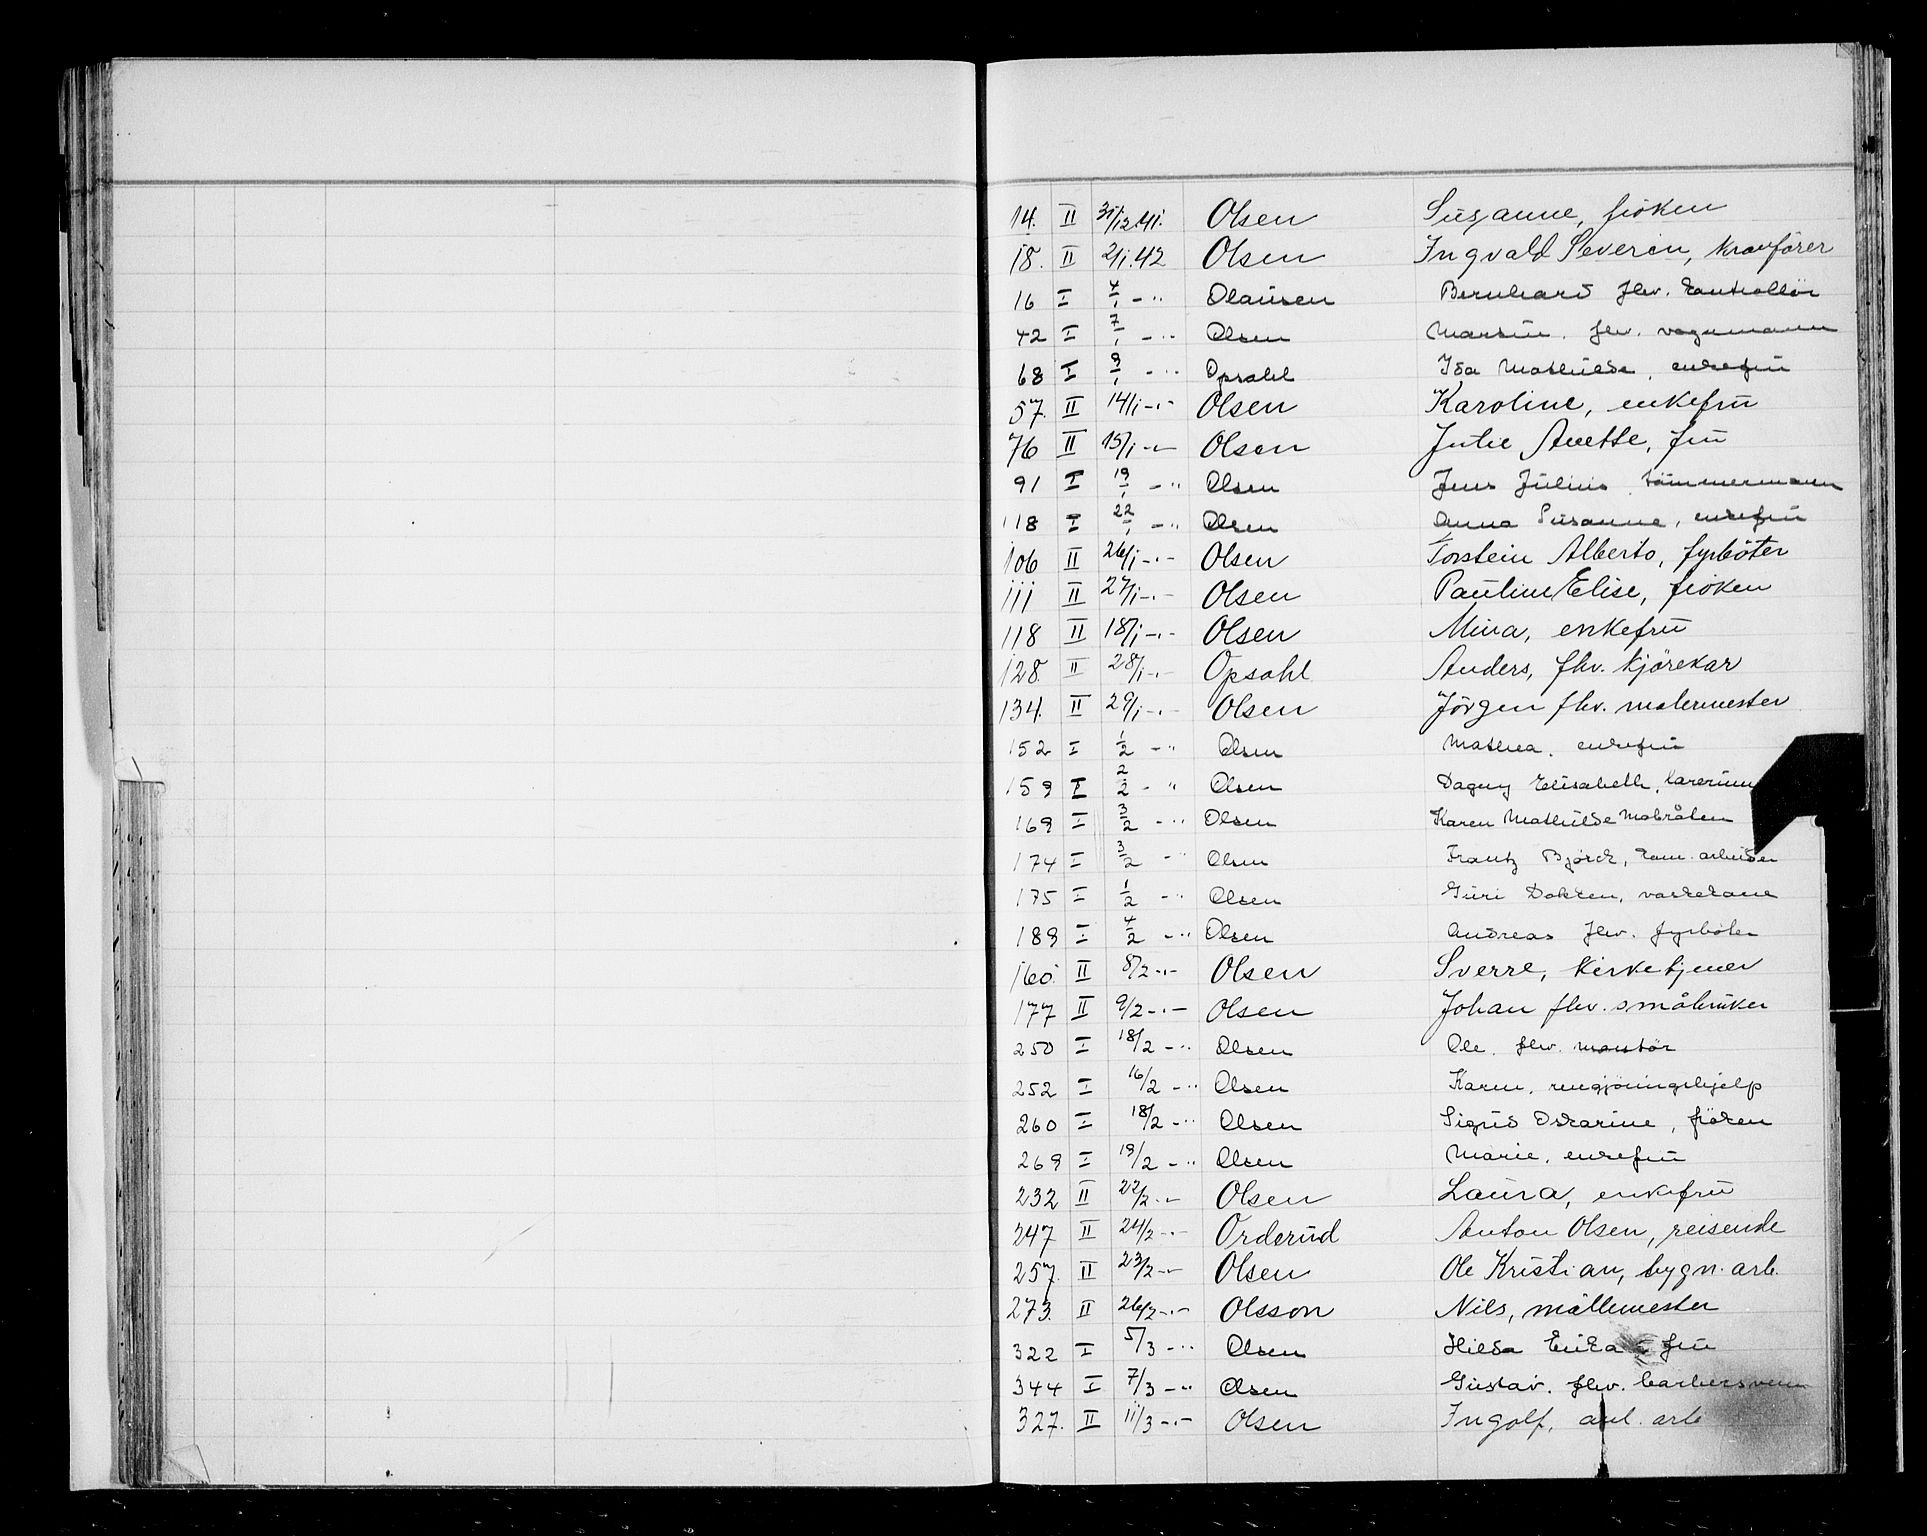 14. II 31/12.41. Olsen Susanne, fröken
18. II 2/1.42 Olsen Ingvald Severin, kranförer
16 I 4/1 - " Olausen Bernhard fhv. kontrollör
42 I 7/1 - " Olsen Martin. fhv. vognmann
68 I 9/1 - " Opsahl Ida Mathilde, enkefru
57. II 14/1 -"- Olsen Karoline, enkefru
76 II 15/1 -"- Olsen Julie Anette, fru
91 I 19/1 - " Olsen Jens Julius, tömmermann
118 I 22/1 - " Olsen Anna Susanne, enkefru
106 II 26/1 -"- Olsen Torstein Alberto, fyrböter
111 II 27/1 -"- Olsen Pauline Elise, fröken
118 II 18/1 -"- Olsen Mina, enkefru
128. II 28/1 -"- Opsahl Anders, fhv. kjörekar
134. II 29/1 -"- Olsen Jörgen fhv. malermester
152 I 1/2 - " Olsen Mathea, enkefru
159 I 2/2 - " Olsen Dagny Elisabeth, lærerinne
169 I 3/2 - " Olsen Karen Mathilde Mobråten
174 I 3/2 - " Olsen Frantz Björck, kom. arbeider
175 I 1/2 - " Olsen Guri Dokken, vaskekone
189 I 4/2 - " Olsen Andreas fhv. fyrböter
160. II 8/2 -"- Olsen Sverre, kirketjener
177 II 9/2 -"- Olsen Johan fhv. småbruker
250 I 18/2 - " Olsen Ole, fhv. montör
252 I 16/2 - " Olsen Karen, rengjöringshjelp
260 I 18/2 - " Olsen Sigrid Oskarine, fröken
269 I 19/2 - " Olsen Marie, enkefru
232 II 22/2 -"- Olsen Laura, enkefru
247 II 24/2 -"- Orderud Anton Olsen, reisende
257. II 23/2 -"- Olsen Ole Kristian, bygn. arb.
273. II 26/2 -"- Olsson Nils, möllemester
322 I 5/3 - " Olsen Hilda Erika fru
344 I 7/3 - " Olsen Gustav. fhv. barbersvenn
327. II 11/3 -"- Olsen Ingolf, anl. arb